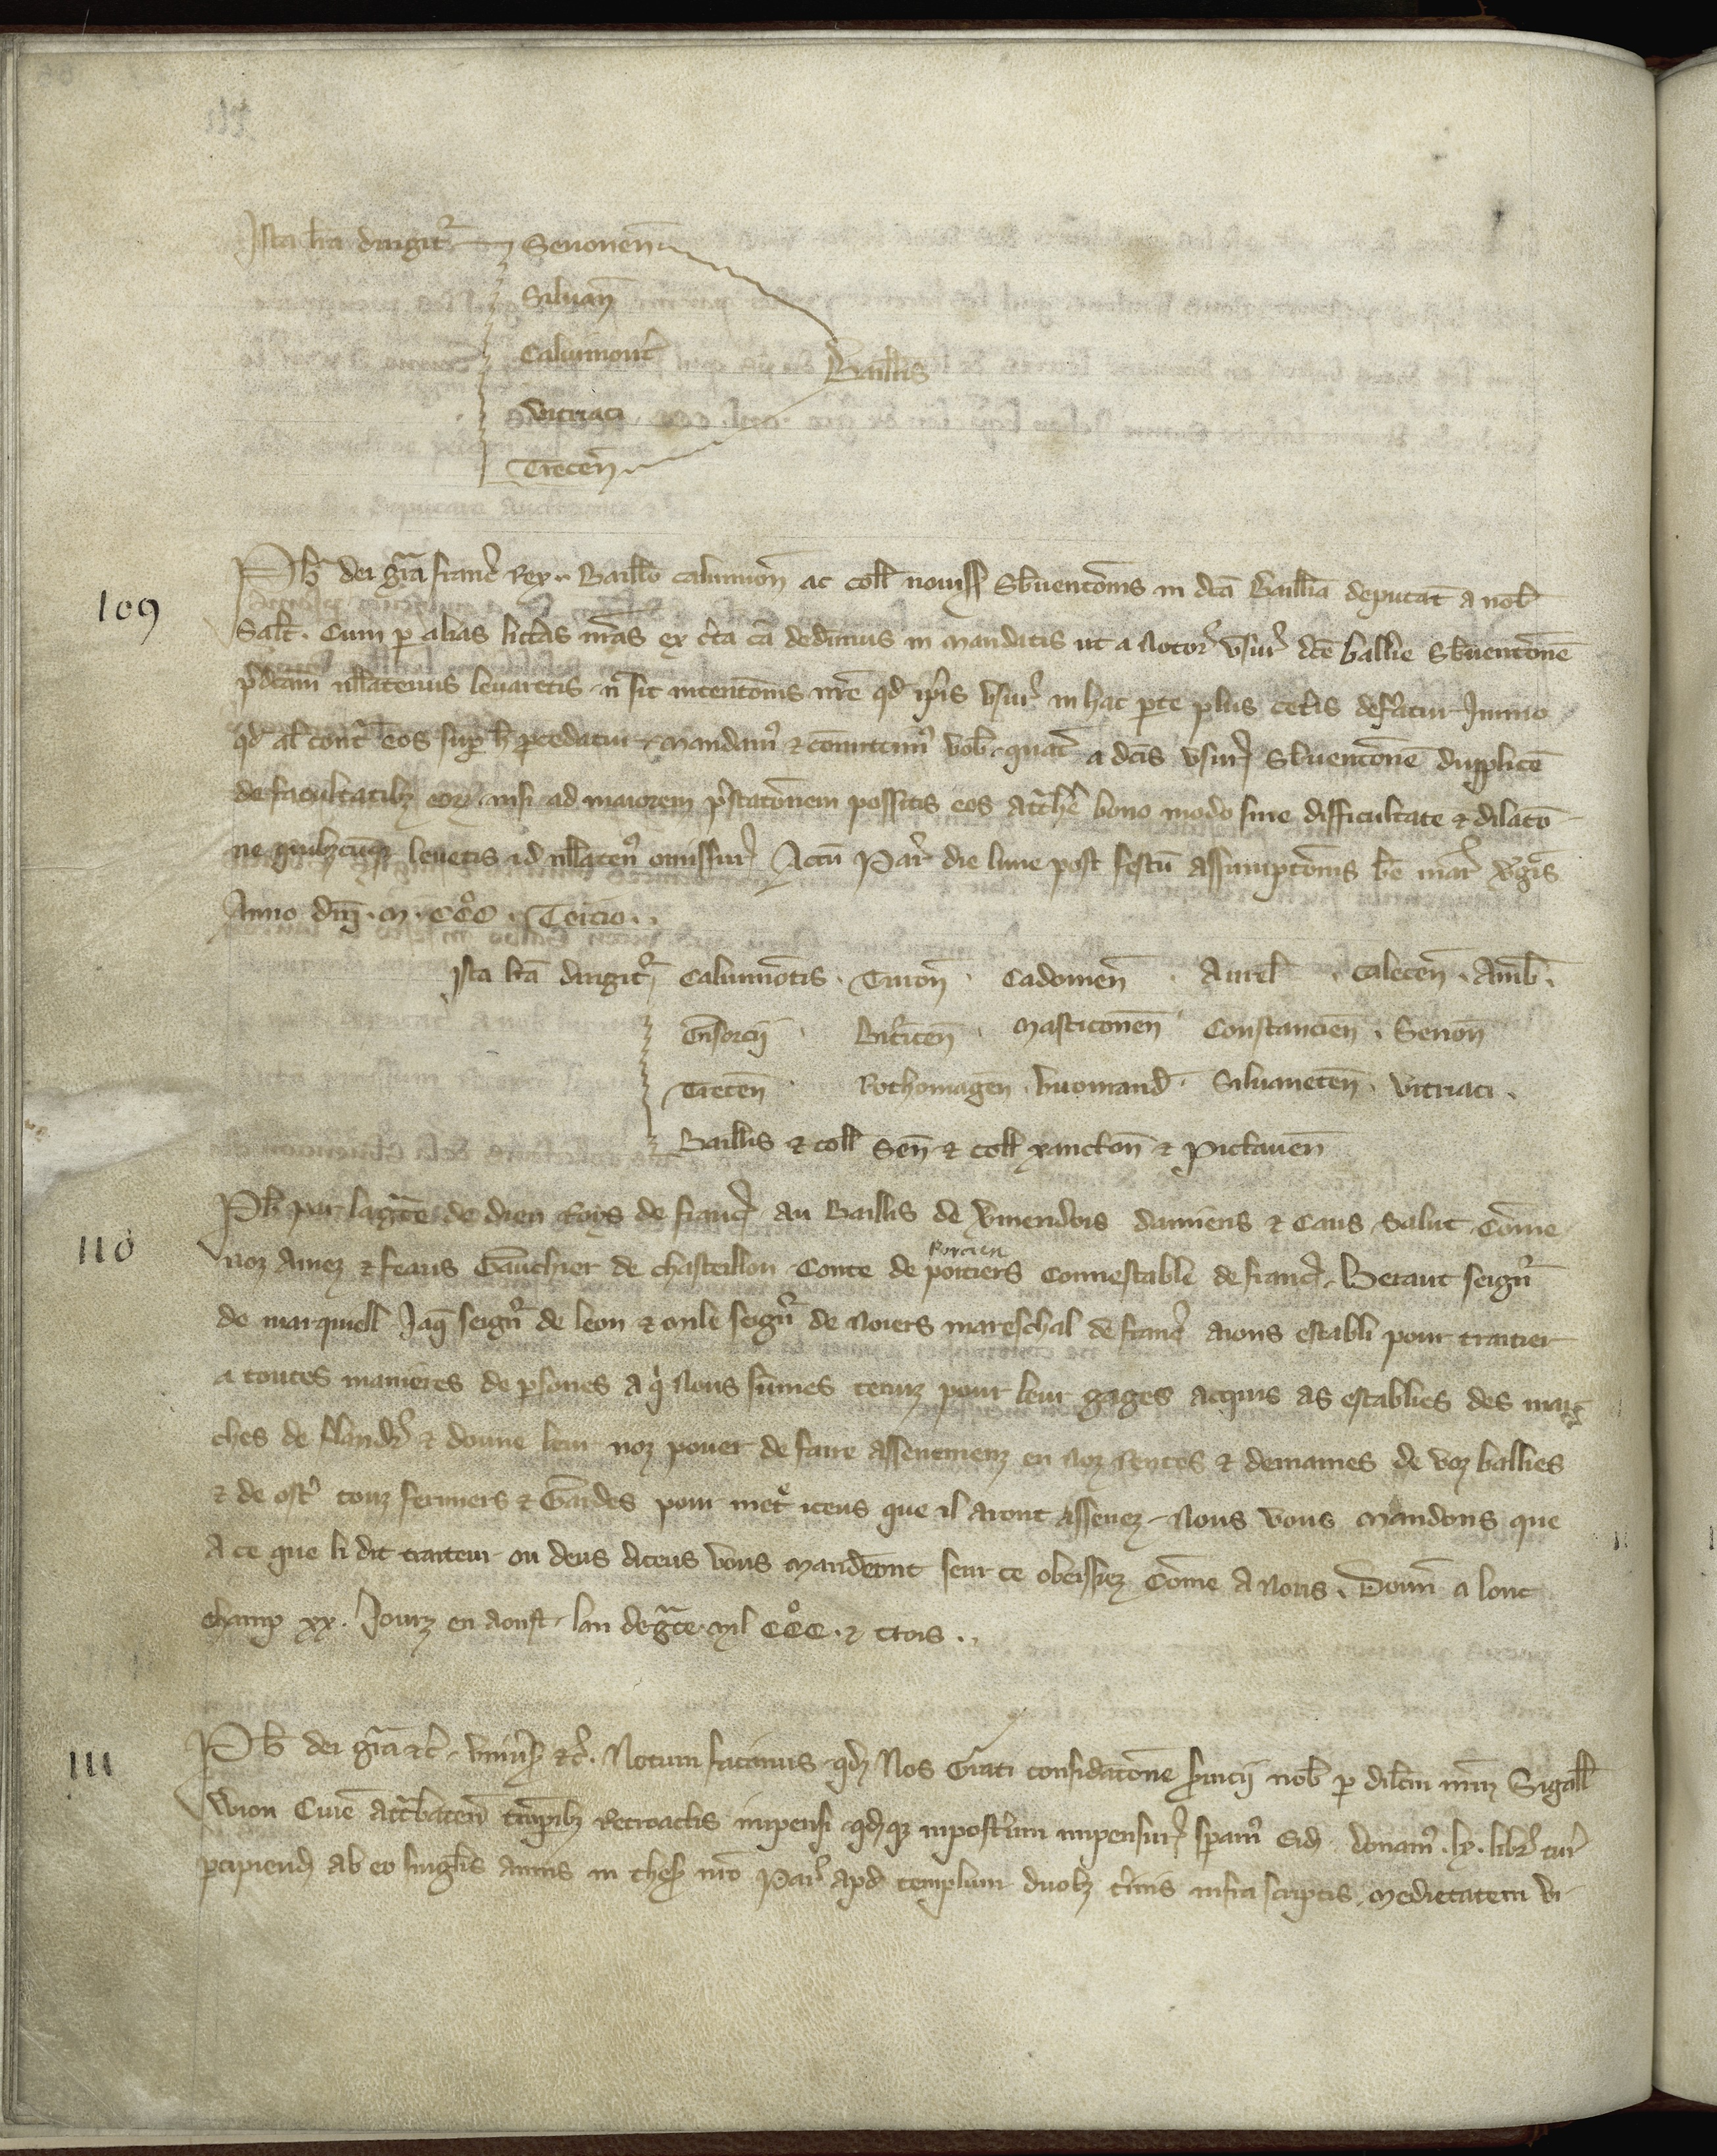 Ista lr̄a dirigit᷑ Senonen̄
Siluan̄
Caluimont̄
Vitriaci
Baillis
Trecen̄
109
Ph̄ dei gr̄a franc̄ Rex. Baill̄o caluimon̄ ac coll̄ nouiss̄ Sb̄uentōnis in dc̄a Baill̄ia deputat̄ a nob̄
Salt̄. Cum p alias litt̄as nr̄as ex c̄ta cā dedimus in mandatis ut a notor᷑ vsur᷑ dc̄e ballie Sb̄uentōnē
p̄dc̄am nll̄atenus leuaretis n̄ sit intentōnis nr̄e qd̄ ip̄is vsur᷑ in hac parte plus cet̄is def᷑atur Immo
qd̄ al̄ cont᷑ eos sup h̄ procedatur Mandam᷑ & cōmittim᷑ vob̄ quat᷑ a dc̄is vsur᷑ Sb̄uentōnē dupplicē
de facultatibꝫ eorꝝ nisi ad maiorem p̄statōnem possitis eos at᷑here bono modo sine difficultate & dilatō
ne quibꝫcūqꝫ leuetis id nll̄aten᷑ omissur᷑ Actū Par᷑ die lune post festū assumptōnis bē mar᷑ v᷑gis
Anno dn̄i. M. CCC°. Tercio..
Ista lr̄a dirigit᷑ Caluimōtis. Turon̄. Cadomen̄. Aurel̄. Caletcen̄. Amb̄.
Gisorcii. Bit᷑icen̄. Masticonen̄ Constancien̄. Senon̄
Trecen̄. Rothomagen̄. viromand̄. Siluanecten̄. vitriaci.
Baillis & coll̄ Sen̄ & coll̄ xancton̄ & Pictauen̄
110
Ph̄ par la gr̄ce de dieu Roys de franc᷑ au Baillis de V᷑mendois damiens & Caus Salut Cōme
noz amez & feaus Gauchier de chasteillon Conte de poitiers Connestable de franc᷑ Beraut seign᷑
Porcien
de marquiell Jaq̄ seign᷑ de leon & mile seign᷑ de noiers mareschal de franc᷑ aions establi pour traitier
a toutes manieres de p̱sones a q̇ nous sūmes tenuz pour leur gages acquis as establies des mar
ches de flandr᷑ & donne leur noz pouer de faire assenemenz en noz rentes & demaines de voz ballies
& de ost᷑ touz fermiers & Gardes pour met᷑ iceus que il aront assenez. Nous vous mandons que
A ce que li dit traiteur ou deus diceus vous mand᷑ont seur ce obeissiez Cōme a nous. Donn̄ a lonc
champ xx. Jourz en aoust lan de gr̄ce mil CCC°. & trois..
111
Ph̄ dei gr̄a &c̄. vniu᷑s᷑ &c̄. Notum facimus qd̄ Nos Grati considatōne s᷑uicii nob̄ p dil̄cm nr̄m Sigall̄
wion Ciuē atr᷑baten̄ tēporibꝫ Retroactis impensi qd̄qꝫ inpost᷑um impensur᷑ speram᷑ eid̄. donam᷑. lx. libr᷑ tur᷑
ꝑcipiend̄ ab eo singl̄is annis in thes᷑ nr̄o Par᷑ apd̄ templum duobꝫ t᷑minis infra scriptis. Medietatem vi